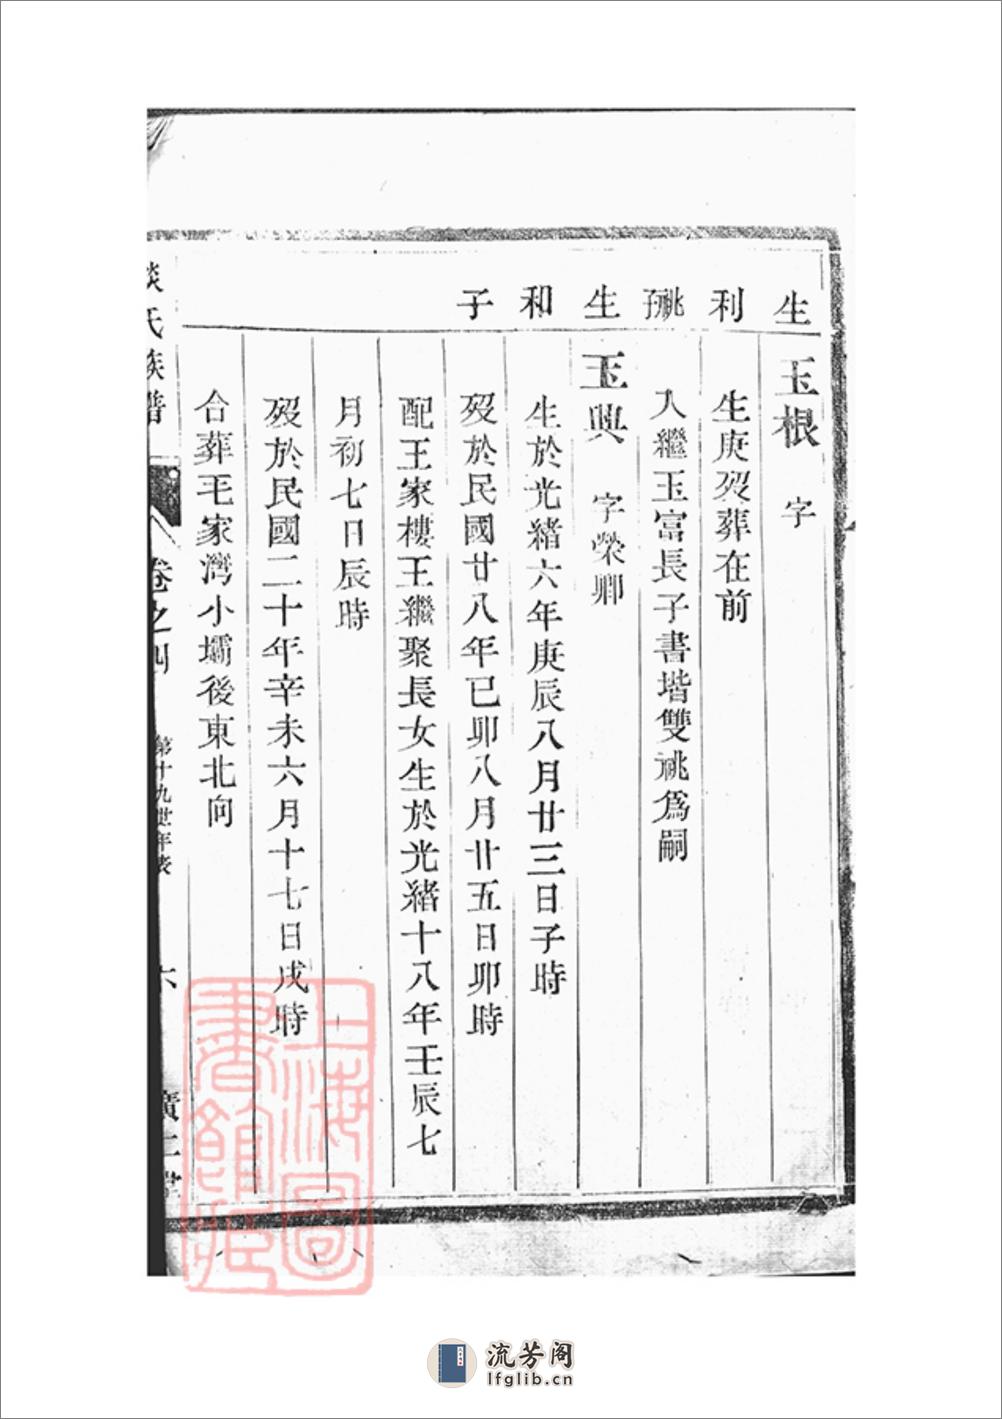 生利祧孫生和子
玉根 字
生庚歿葬在前
入繼玉富長子書堦雙祧為嗣
玉興 字榮卿
生於光緒六年庚辰八月廿三日子時
歿於民國廿八年己卯八月廿五日卯時
配王家樓王繼聚長女生於光緒十八年壬辰七
月初七日辰時
歿於民國二十年辛未六月十七日戌時
合葬毛家灣小壩後東北向
談氏族譜 卷之四 第十九世年表 六 廣仁堂
上海圖
書館藏
流芳阁
lfglib.cn